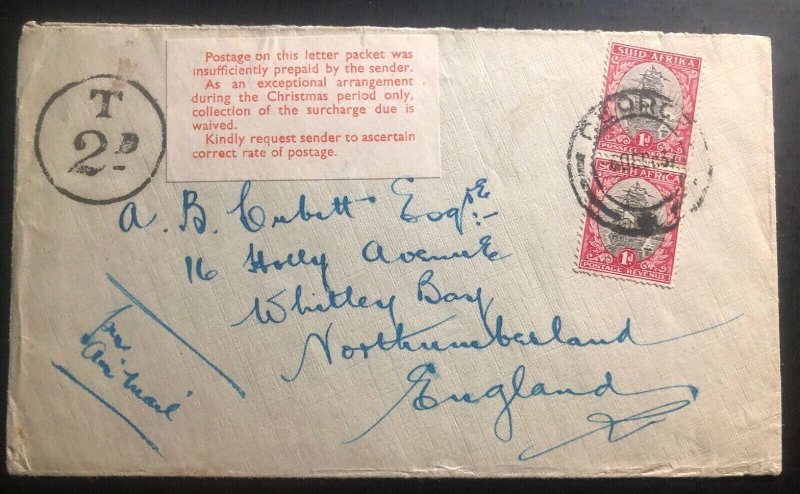 T
2D
Postage on this letter packet was
insufficiently prepaid by the sender.
As an exceptional arrangement
during the Christmas period only,
collection of the surcharge due is
waived.
Kindly request sender to ascertain
correct rate of postage.
SUID AFRIKA
1D
GEORGE
SOUTH AFRICA
1D
POSTAGE REVENUE
A. B. Cubitt Esqre:-
16 Holly Avenue
Whitley Bay
Northumberland
England
Air-mail